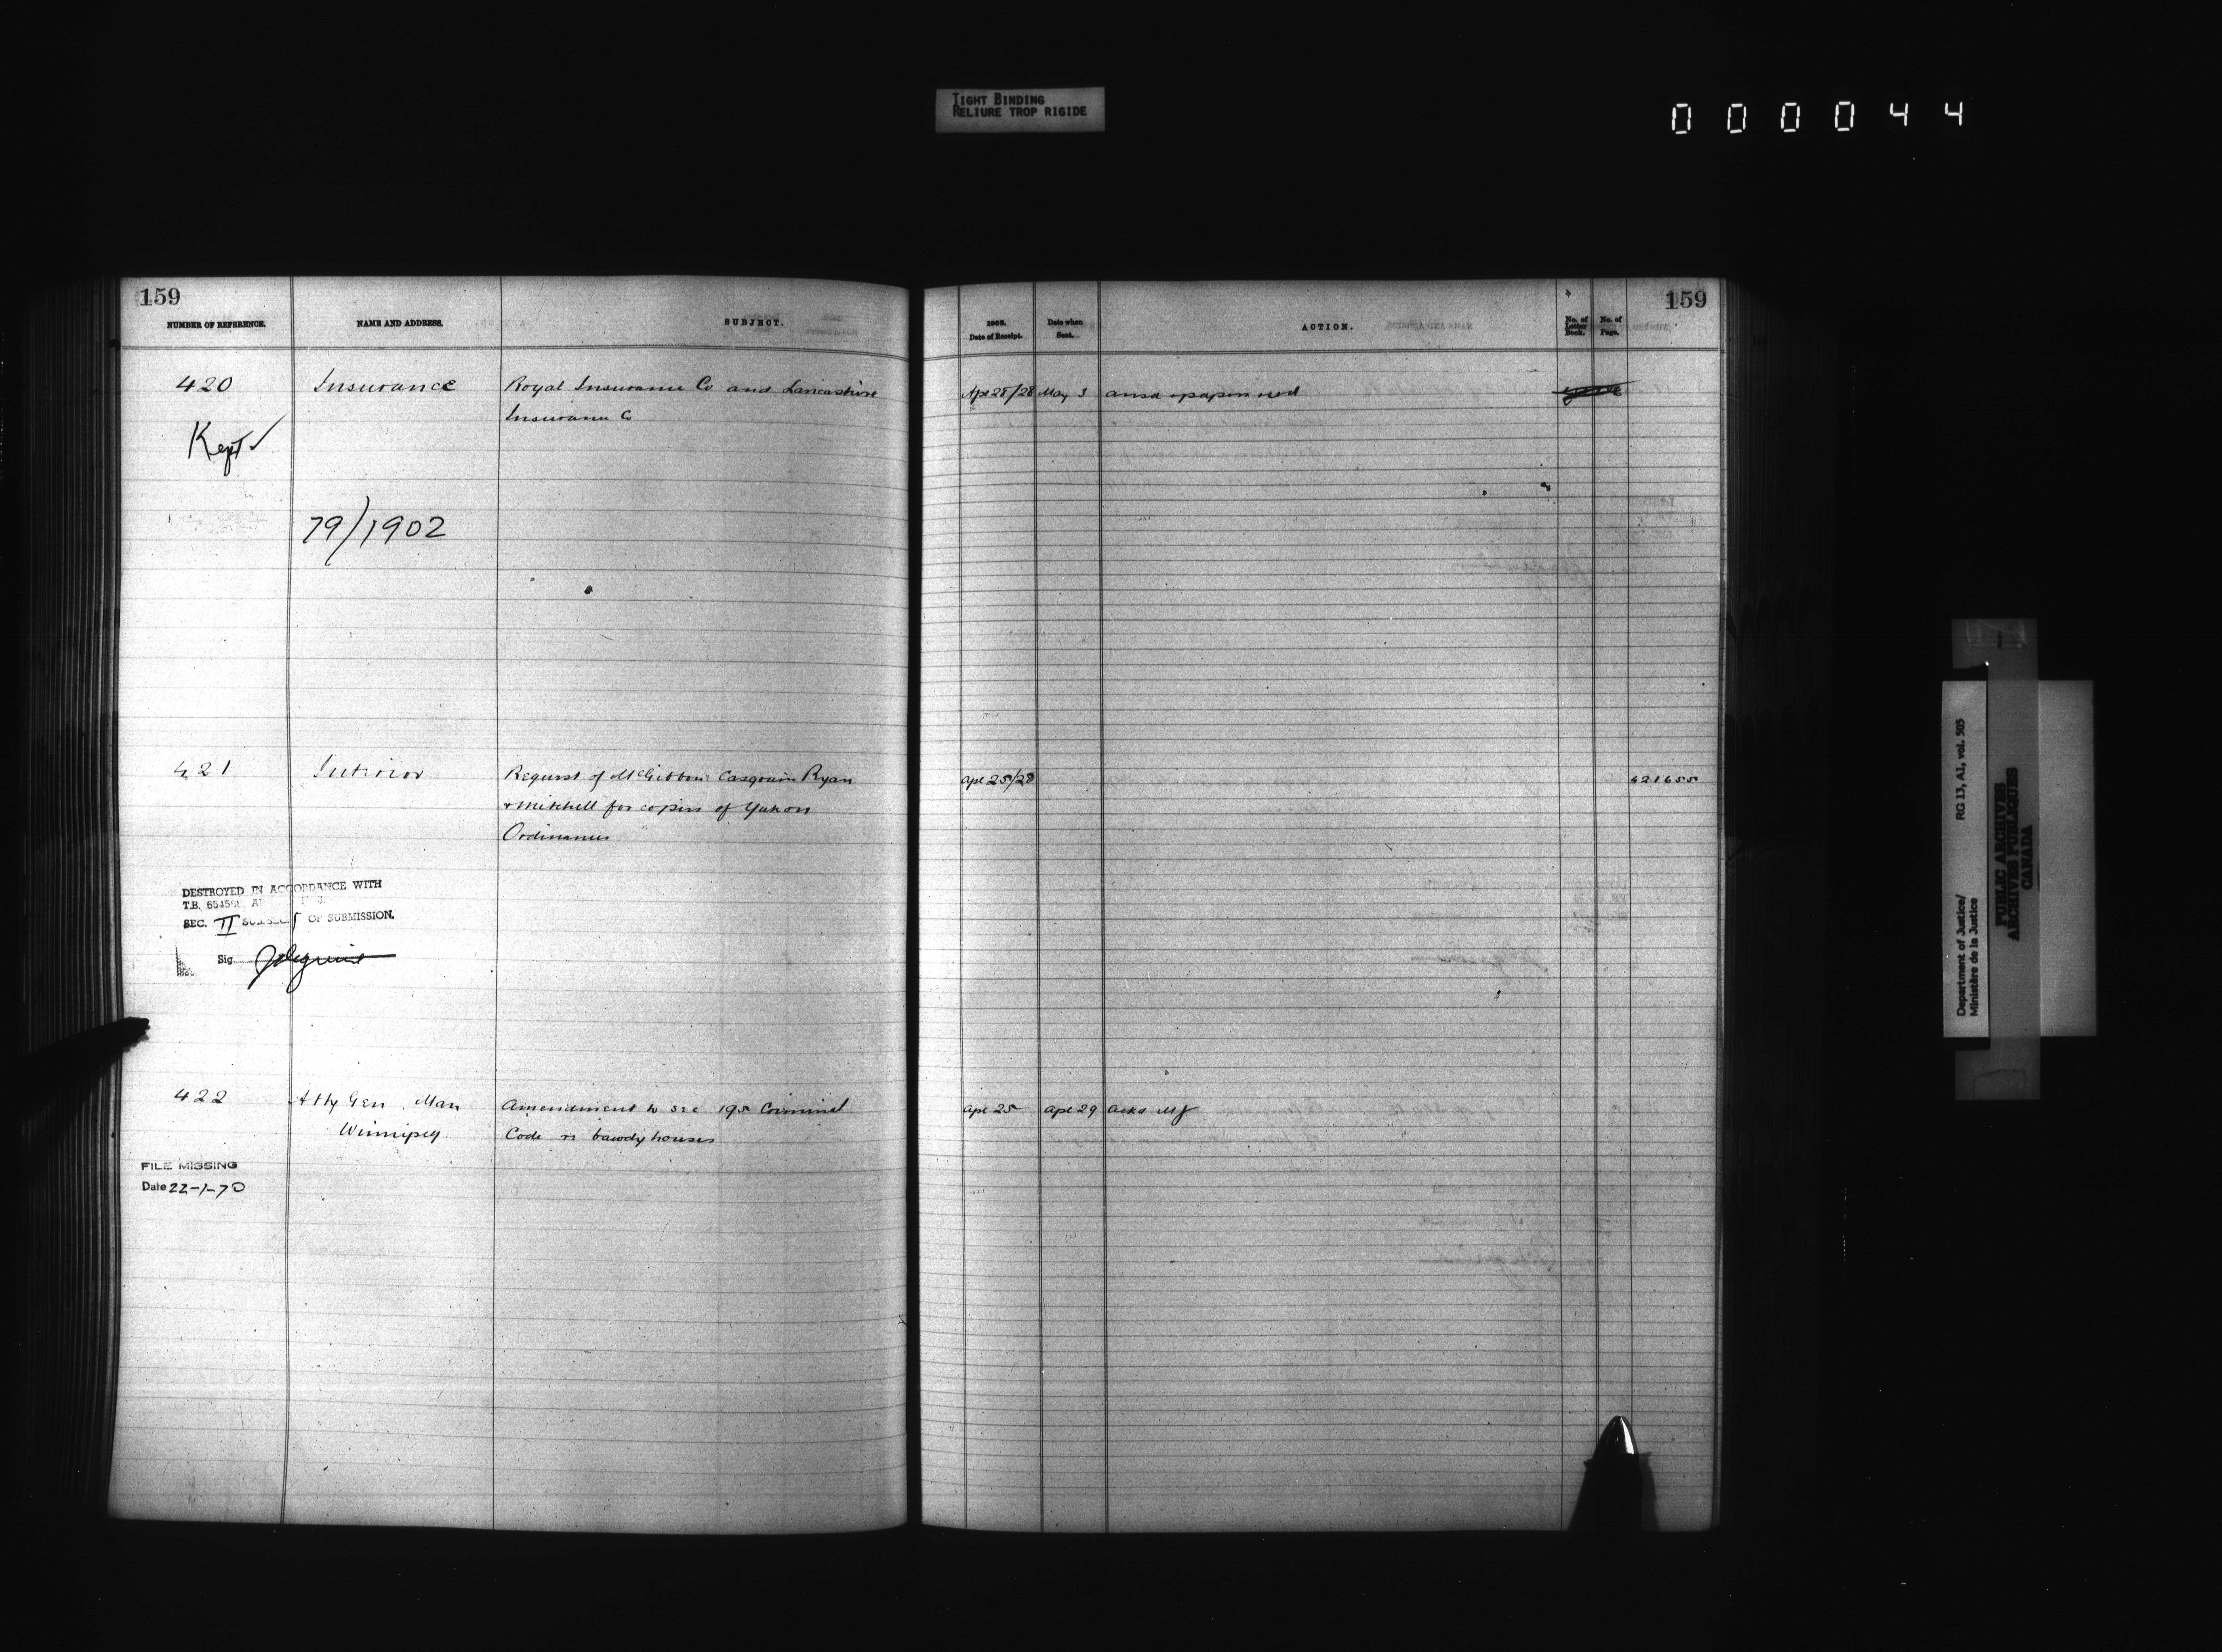 TIGHT BINDING
RELIURE TROP RIGIDE
000044
159
NUMBER OF REFERENCE.
NAME AND ADDRESS.
SUBJECT.
420
Insurance
Royal Insurance Co and Lancashire
Insurance Co
Kept ✓
79/1902
421
Interior
Request of McGibbon Casgrain Ryan
+ Mitchell for copies of Yukon
Ordinances
DESTROYED IN ACCORDANCE WITH
T.B.
SEC. II SUB.SEC. OF SUBMISSION.
Sig.
422
Atty Gen Man
Winnipeg
Amendment to sec 195 Criminal
Code re bawdy houses
FILE MISSING
Date 22-1-70
159
1902.
Date of Receipt.
Date when
Sent.
ACTION.
No. of
Letter
Book.
No. of
Page.
Apl 25/28
May 3
Apl 25/28
421655
Apl 25
Apl 29
Ackd MJ
Department of Justice/
Ministère de la Justice
RG 13, A1, vol. 505
PUBLIC ARCHIVES
ARCHIVES PUBLIQUES
CANADA